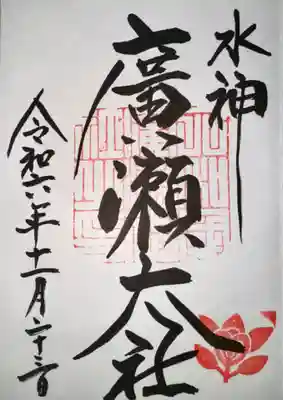 水神
廣瀬大社
令和六年十一月二十三日